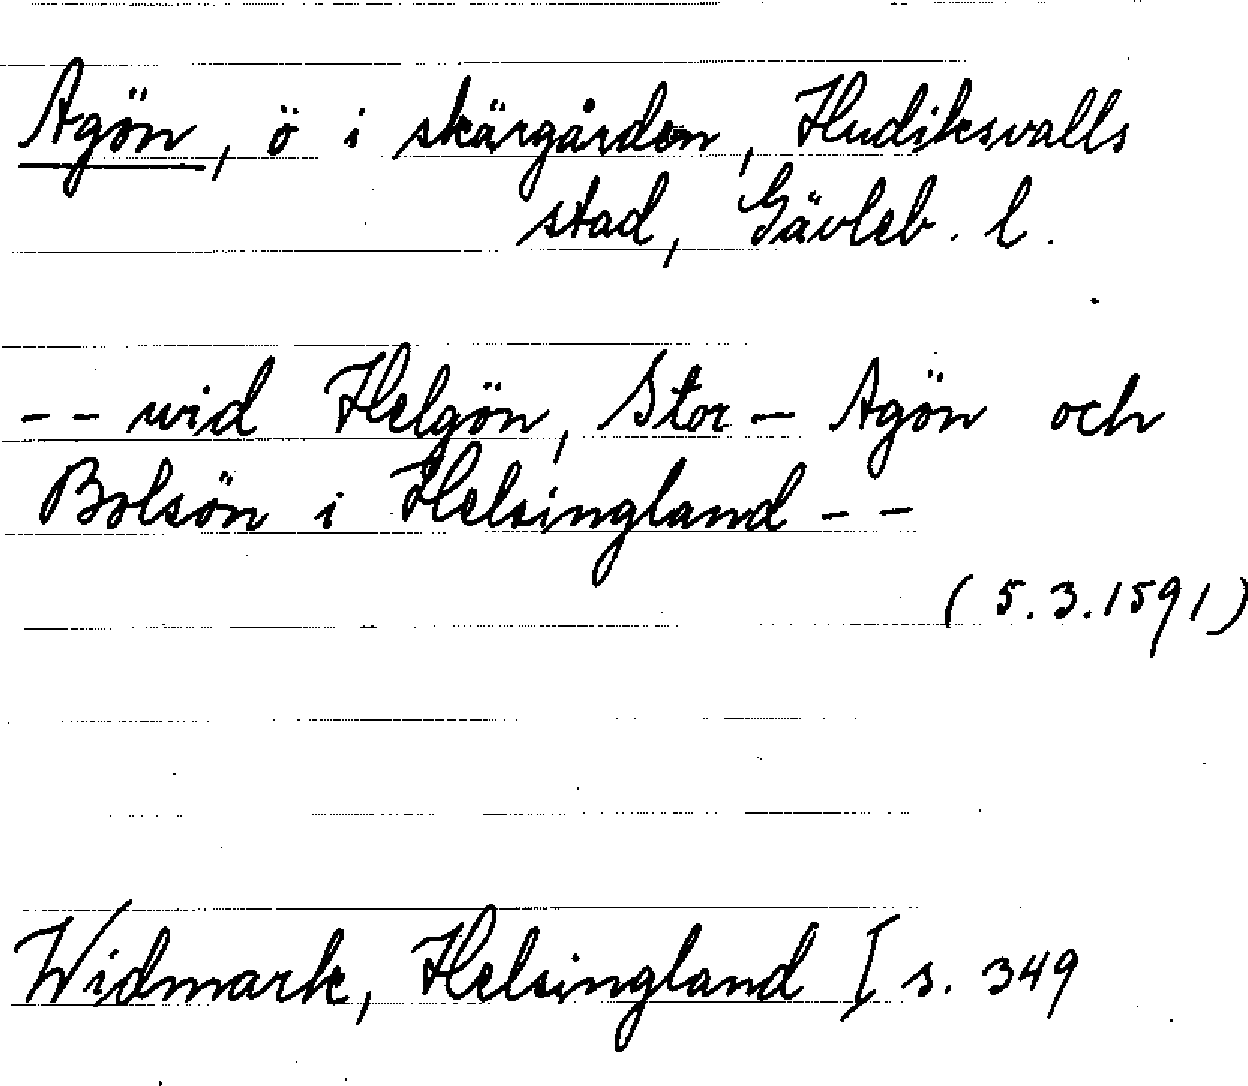 Agön, ö i skärgården, Hudiksvalls
stad, Gävleb. l.
-- wid Helgön, Stor - Agön och
Bolsön i Helsingland --
(5.3.1591)
Widmark, Helsingland I s. 349